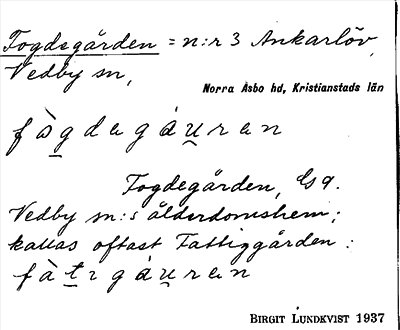 Fogdegården = n:r 3 Ankarlöv,
Vedby sn,
Norra Åsbo hd, Kristianstads län
fògdegáuren
Fogdegården, Gg.
Vedby sn:s ålderdomshem;
kallas oftast Fattiggården:
fàtıgáuren
BIRGIT LUNDKVIST 1937